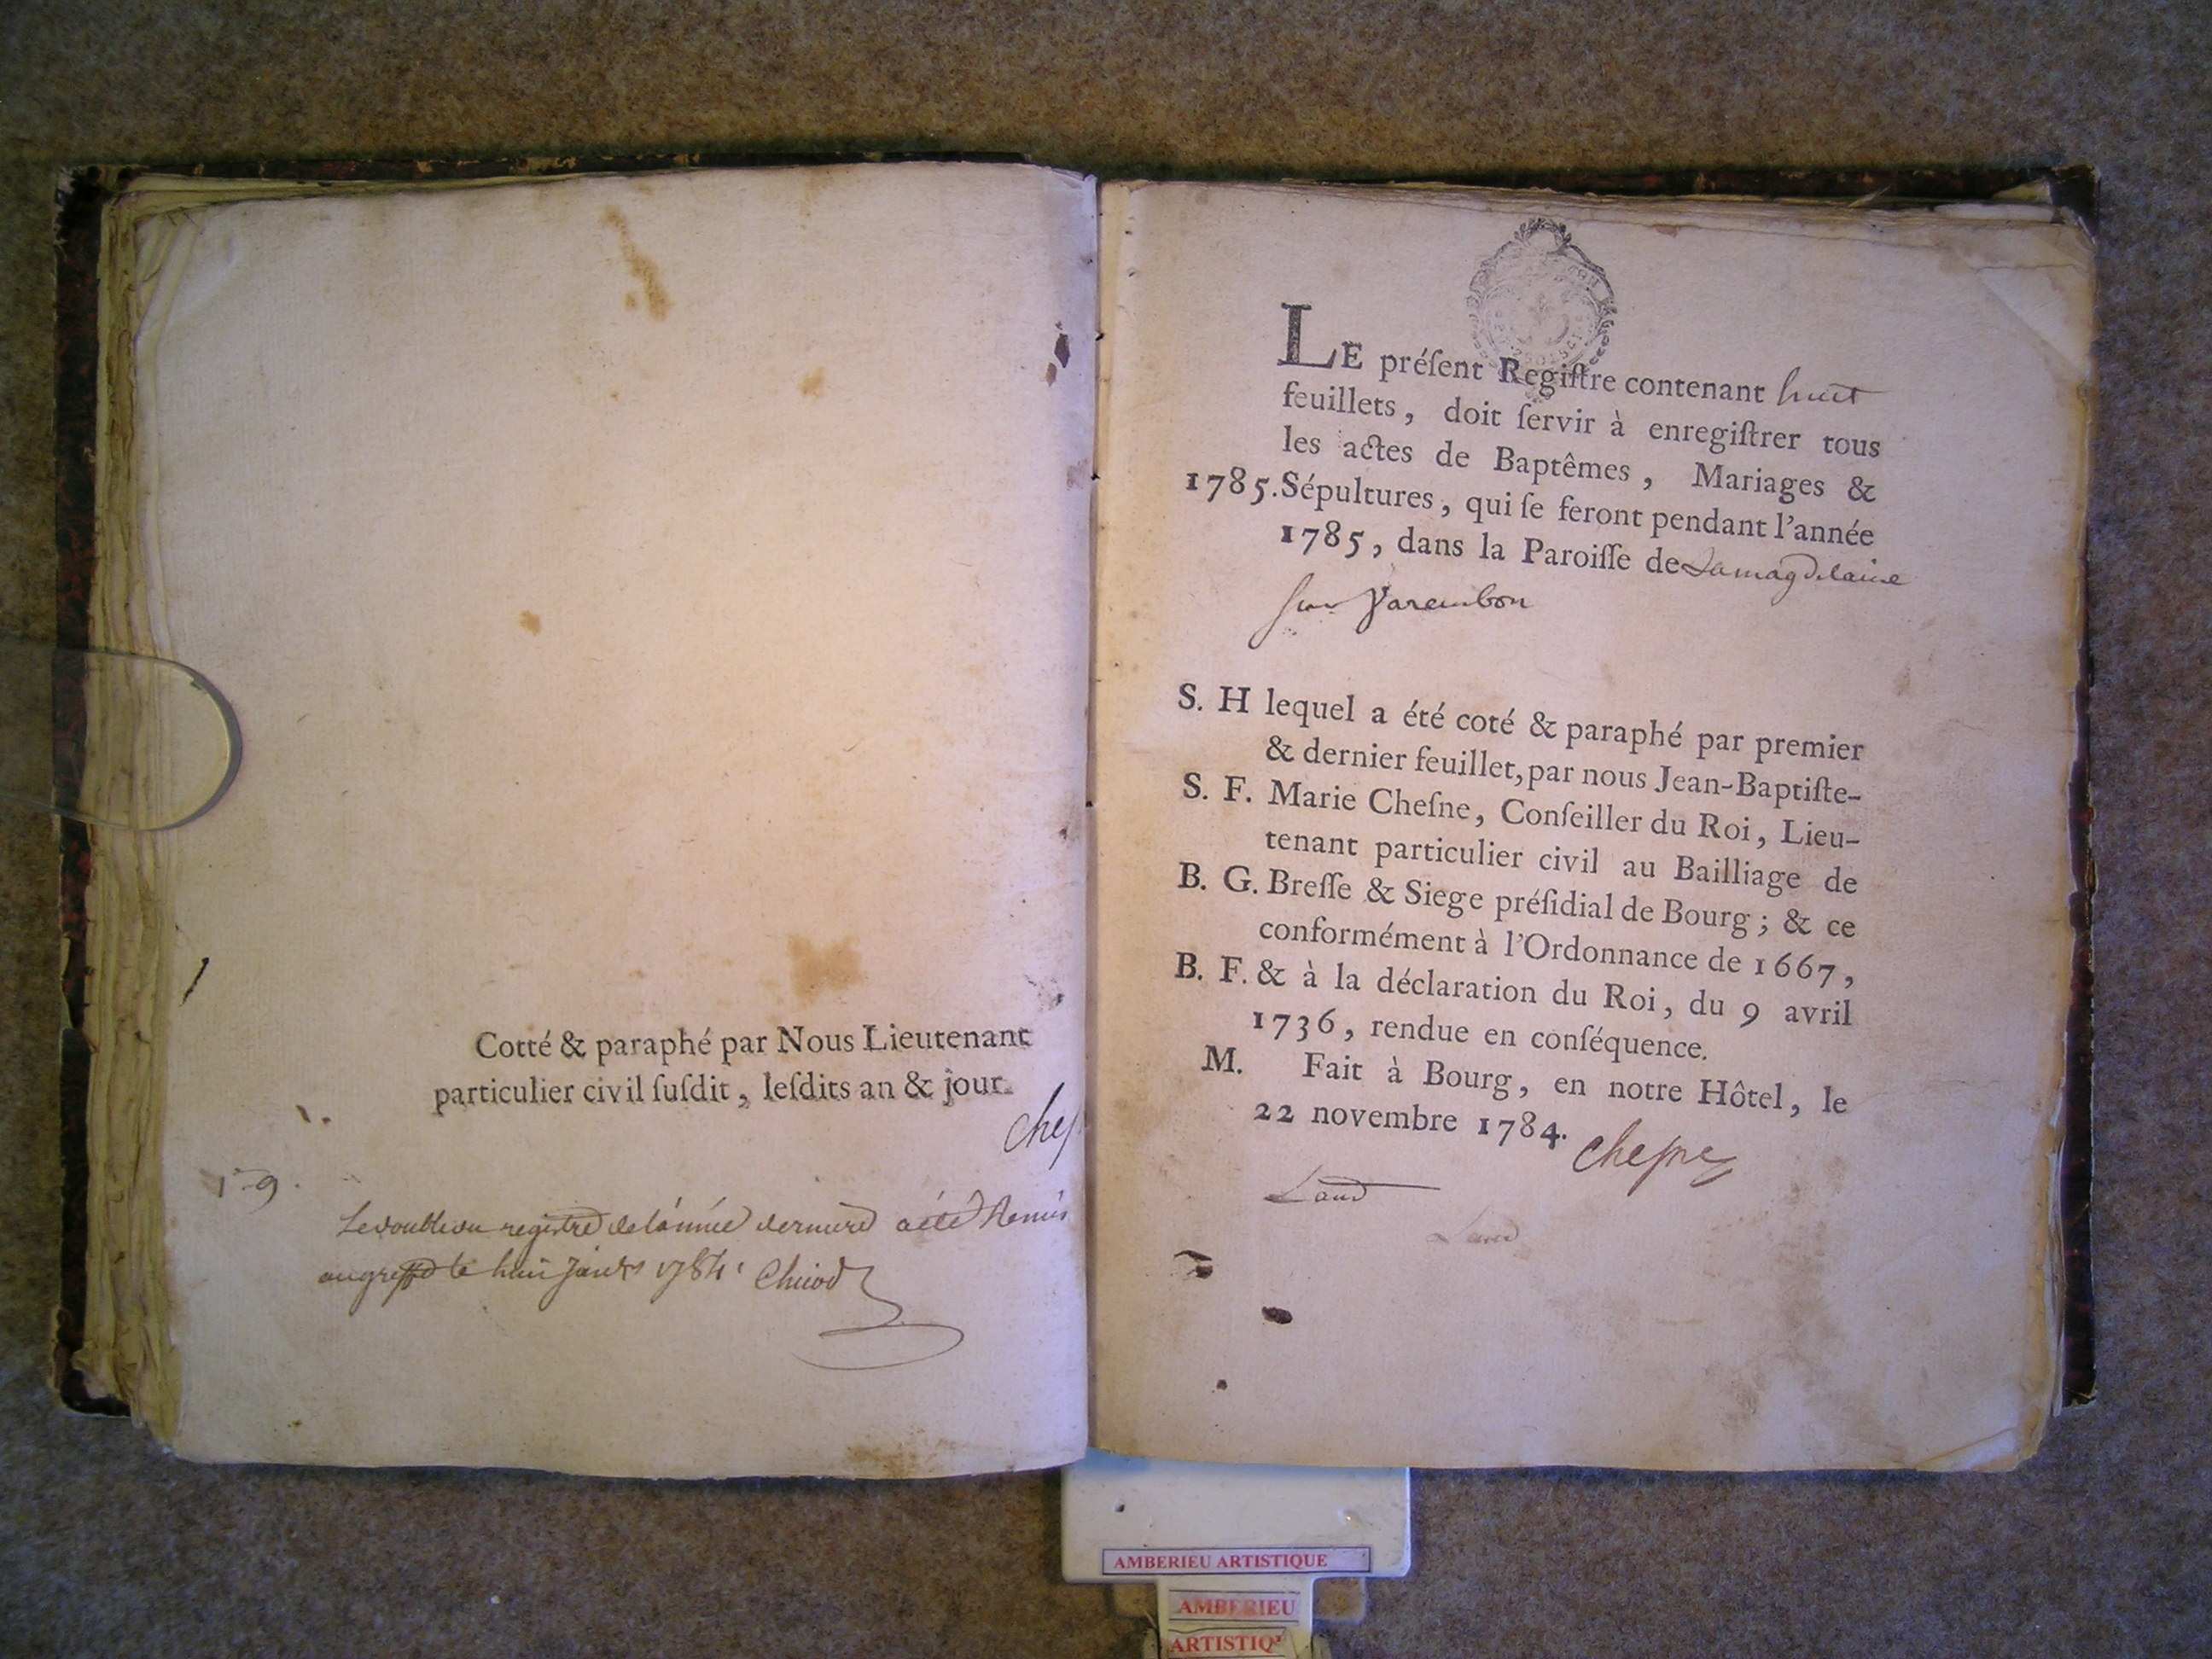 Cotté & paraphé par Nous Lieutenant
particulier civil ſuſdit, leſdits an & jour.
cheſ
1.
19.
Ledouble du registre de lannée derniere a été Remis
au greffe le huit Janvr 1784
LE préſent Regiſtre contenant huit
feuillets, doit ſervir à enregiſtrer tous
les actes de Baptêmes, Mariages &
1785. Sépultures, qui ſe feront pendant l'année
1785, dans la Paroiſſe de Lamagdelaine
ſur Varembon
S. H lequel a été coté & paraphé par premier
& dernier feuillet, par nous Jean-Baptiſte-
S. F. Marie Cheſne, Conſeiller du Roi, Lieu-
tenant particulier civil au Bailliage de
B. G. Breſſe & Siege préſidial de Bourg; & ce
conformément à l'Ordonnance de 1667,
B. F. & à la déclaration du Roi, du 9 avril
1736, rendue en conſéquence.
M. Fait à Bourg, en notre Hôtel, le
22 novembre 1784.
cheſne
AMBERIEU ARTISTIQUE
AMBERIEU
ARTISTIQ